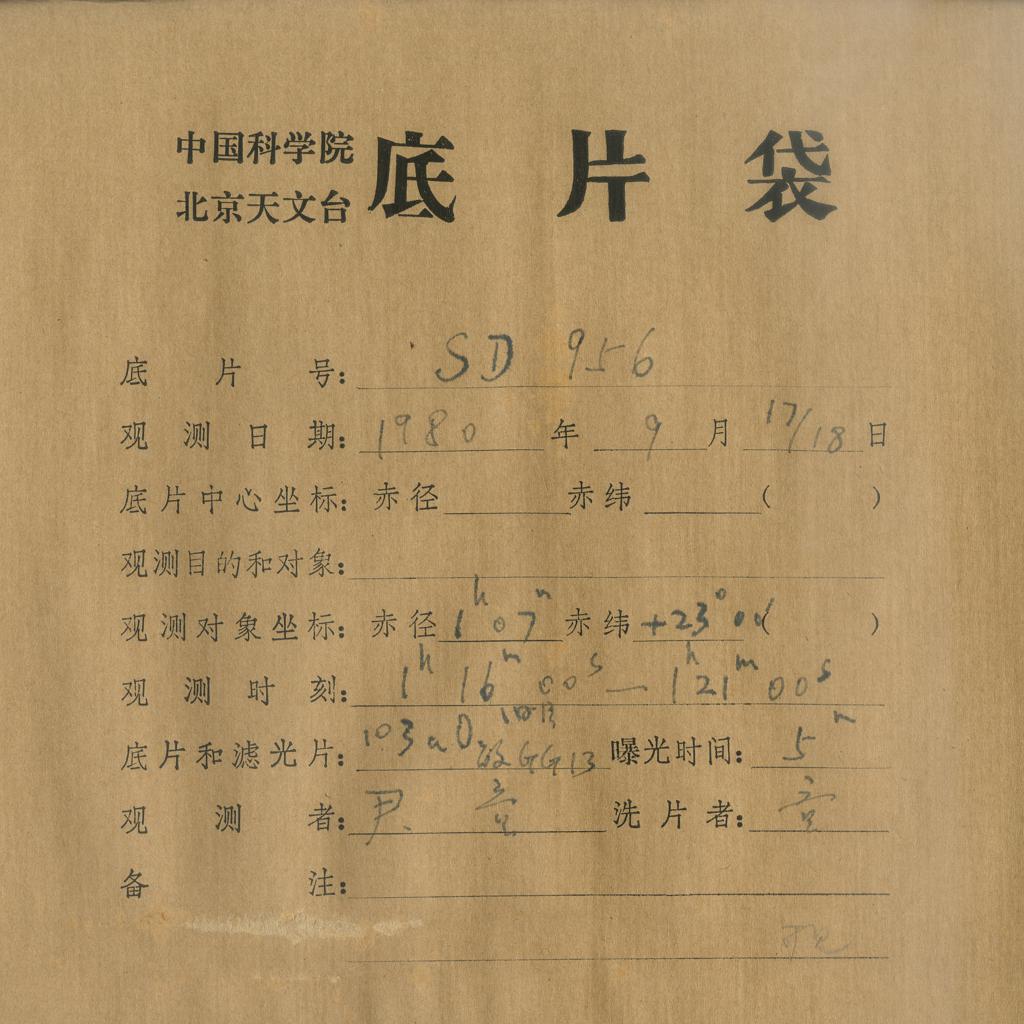 中国科学院
北京天文台
底片袋
底片号: SD 956
观测日期: 1980 年 9 月 17/18 日
底片中心坐标: 赤径 赤纬 ( )
观测目的和对象:
观测对象坐标: 赤径 1h 07m 赤纬 +23°00′ ( )
观测时刻: 1h 16m 00s — 1h 21m 00s
底片和滤光片: 103aO GG13 曝光时间: 5m
观测者: 尹 洗片者:
备注: